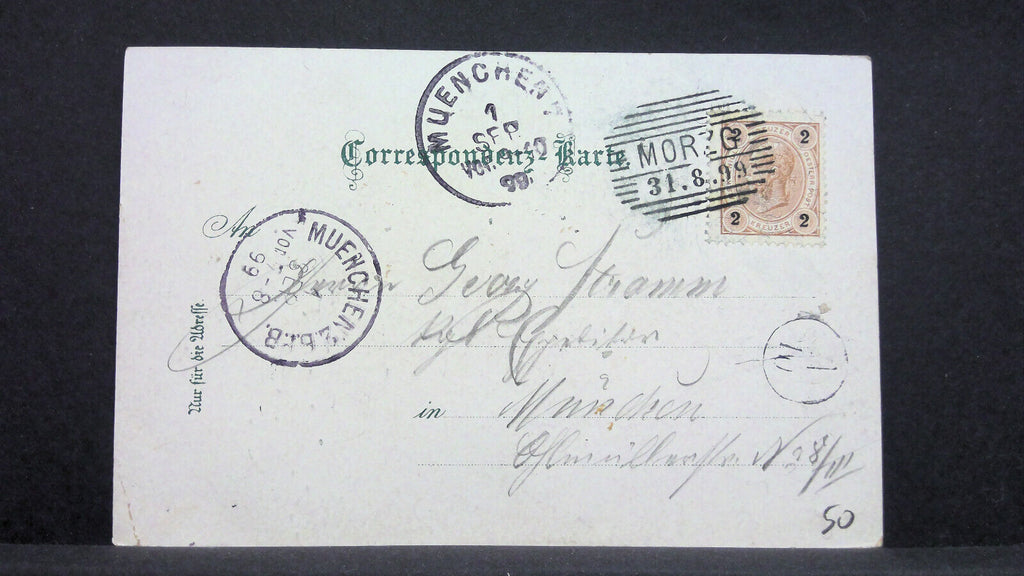 MUENCHEN
1
SEP.
VOR.
99
Correspondenz-Karte
MORZG
31.8.99
2 2
2 2
KREUZER
An
MUENCHEN 2. B.r.B.
VOR. 7-8
99
Herrn Georg Stramm
kgl. Expeditor
in München
Ohlmüllerstr. N 28/III
Nur für die Adresse.
50